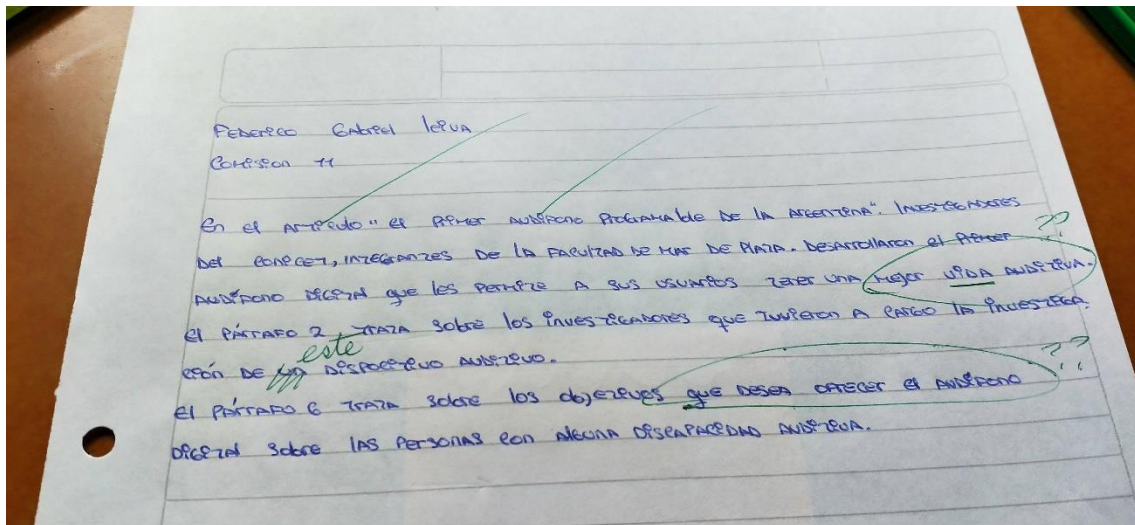 Federico Gabriel Leiva
Comision 11
En el artículo "el primer audífono programable de la Argentina". Investigadores
del conicet, integrantes de la facultad de mar de plata. Desarrollaron el primer ??
audífono digital que les permite a sus usuarios tener una mejor vida auditiva.
el párrafo 2, trata sobre los investigadores que tuvieron a cargo la investiga
este
ción de un dispositivo auditivo.
el párrafo 6 trata sobre los objetivos que desea ofrecer el audífono ??
digital sobre las personas con alguna discapacidad auditiva.